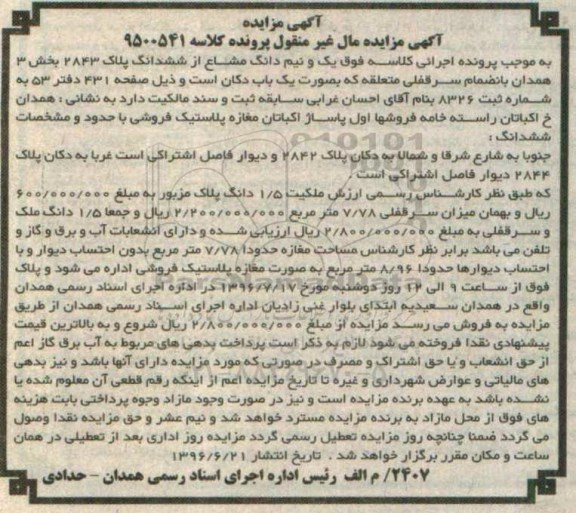 آگهی مزایده
آگهی مزایده مال غیر منقول پرونده کلاسه ۹۵۰۰۵۴۱
به موجب پرونده اجرائی کلاسه فوق یک و نیم دانگ مشاع از ششدانگ پلاک ۲۸۴۳ بخش ۳
همدان بانضمام سرقفلی متعلقه که بصورت یک باب دکان است و ذیل صفحه ۴۳۱ دفتر ۵۳ به
شماره ثبت ۸۳۲۶ بنام آقای احسان غرابی سابقه ثبت و سند مالکیت دارد به نشانی : همدان
خ اکباتان راسته خامه فروشها اول پاساژ اکباتان مغازه پلاستیک فروشی با حدود و مشخصات
ششدانگ :
جنوبا به شارع شرقا و شمالا به دکان پلاک ۲۸۴۲ و دیوار فاصل اشتراکی است غربا به دکان پلاک
۲۸۴۴ دیوار فاصل اشتراکی است .
که طبق نظر کارشناس رسمی ارزش ملکیت ۱/۵ دانگ پلاک مزبور به مبلغ ۶۰۰/۰۰۰/۰۰۰
ریال و بهمان میزان سرقفلی ۷/۷۸ متر مربع ۲/۲۰۰/۰۰۰/۰۰۰ ریال و جمعا ۱/۵ دانگ ملک
و سرقفلی به مبلغ ۲/۸۰۰/۰۰۰/۰۰۰ ریال ارزیابی شده و دارای انشعابات آب و برق و گاز و
تلفن می باشد برابر نظر کارشناس مساحت مغازه حدودا ۷/۷۸ متر مربع بدون احتساب دیوار و با
احتساب دیوارها حدودا ۸/۹۶ متر مربع به صورت مغازه پلاستیک فروشی اداره می شود و پلاک
فوق از ساعت ۹ الی ۱۲ روز دوشنبه مورخ ۱۳۹۶/۷/۱۷ در اداره اجرای اسناد رسمی همدان
واقع در همدان سعیدیه ابتدای بلوار غنی زادیان اداره اجرای اسناد رسمی همدان از طریق
مزایده به فروش می رسد مزایده از مبلغ ۲/۸۰۰/۰۰۰/۰۰۰ ریال شروع و به بالاترین قیمت
پیشنهادی نقدا فروخته می شود لازم به ذکر است پرداخت بدهی های مربوط به آب برق گاز اعم
از حق انشعاب و یا حق اشتراک و مصرف در صورتی که مورد مزایده دارای آنها باشد و نیز بدهی
های مالیاتی و عوارض شهرداری و غیره تا تاریخ مزایده اعم از اینکه رقم قطعی آن معلوم شده یا
نشده باشد به عهده برنده مزایده است و نیز در صورت وجود مازاد وجوه پرداختی بابت هزینه
های فوق از محل مازاد به برنده مزایده مسترد خواهد شد و نیم عشر و حق مزایده نقدا وصول
می گردد ضمنا چنانچه روز مزایده تعطیل رسمی گردد مزایده روز اداری بعد از تعطیلی در همان
ساعت و مکان مقرر برگزار خواهد شد . تاریخ انتشار ۱۳۹۶/۶/۲۱
۲۴۰۷/ م الف رئیس اداره اجرای اسناد رسمی همدان – حدادی